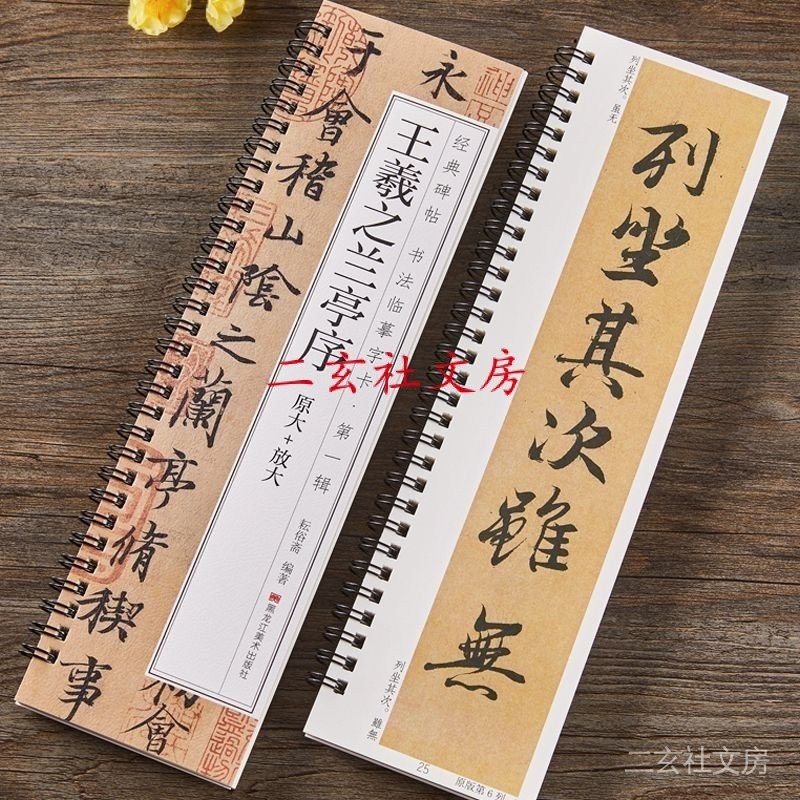 永
于會稽山陰之蘭亭脩禊事
會
经典碑帖 书法临摹字卡·第一辑
王羲之兰亭序
原大+放大
耘俗斋 编著
黑龙江美术出版社
列坐其次。虽无
列坐其次雖無
列坐其次。雖無
25
原版第6列
二玄社文房
二玄社文房